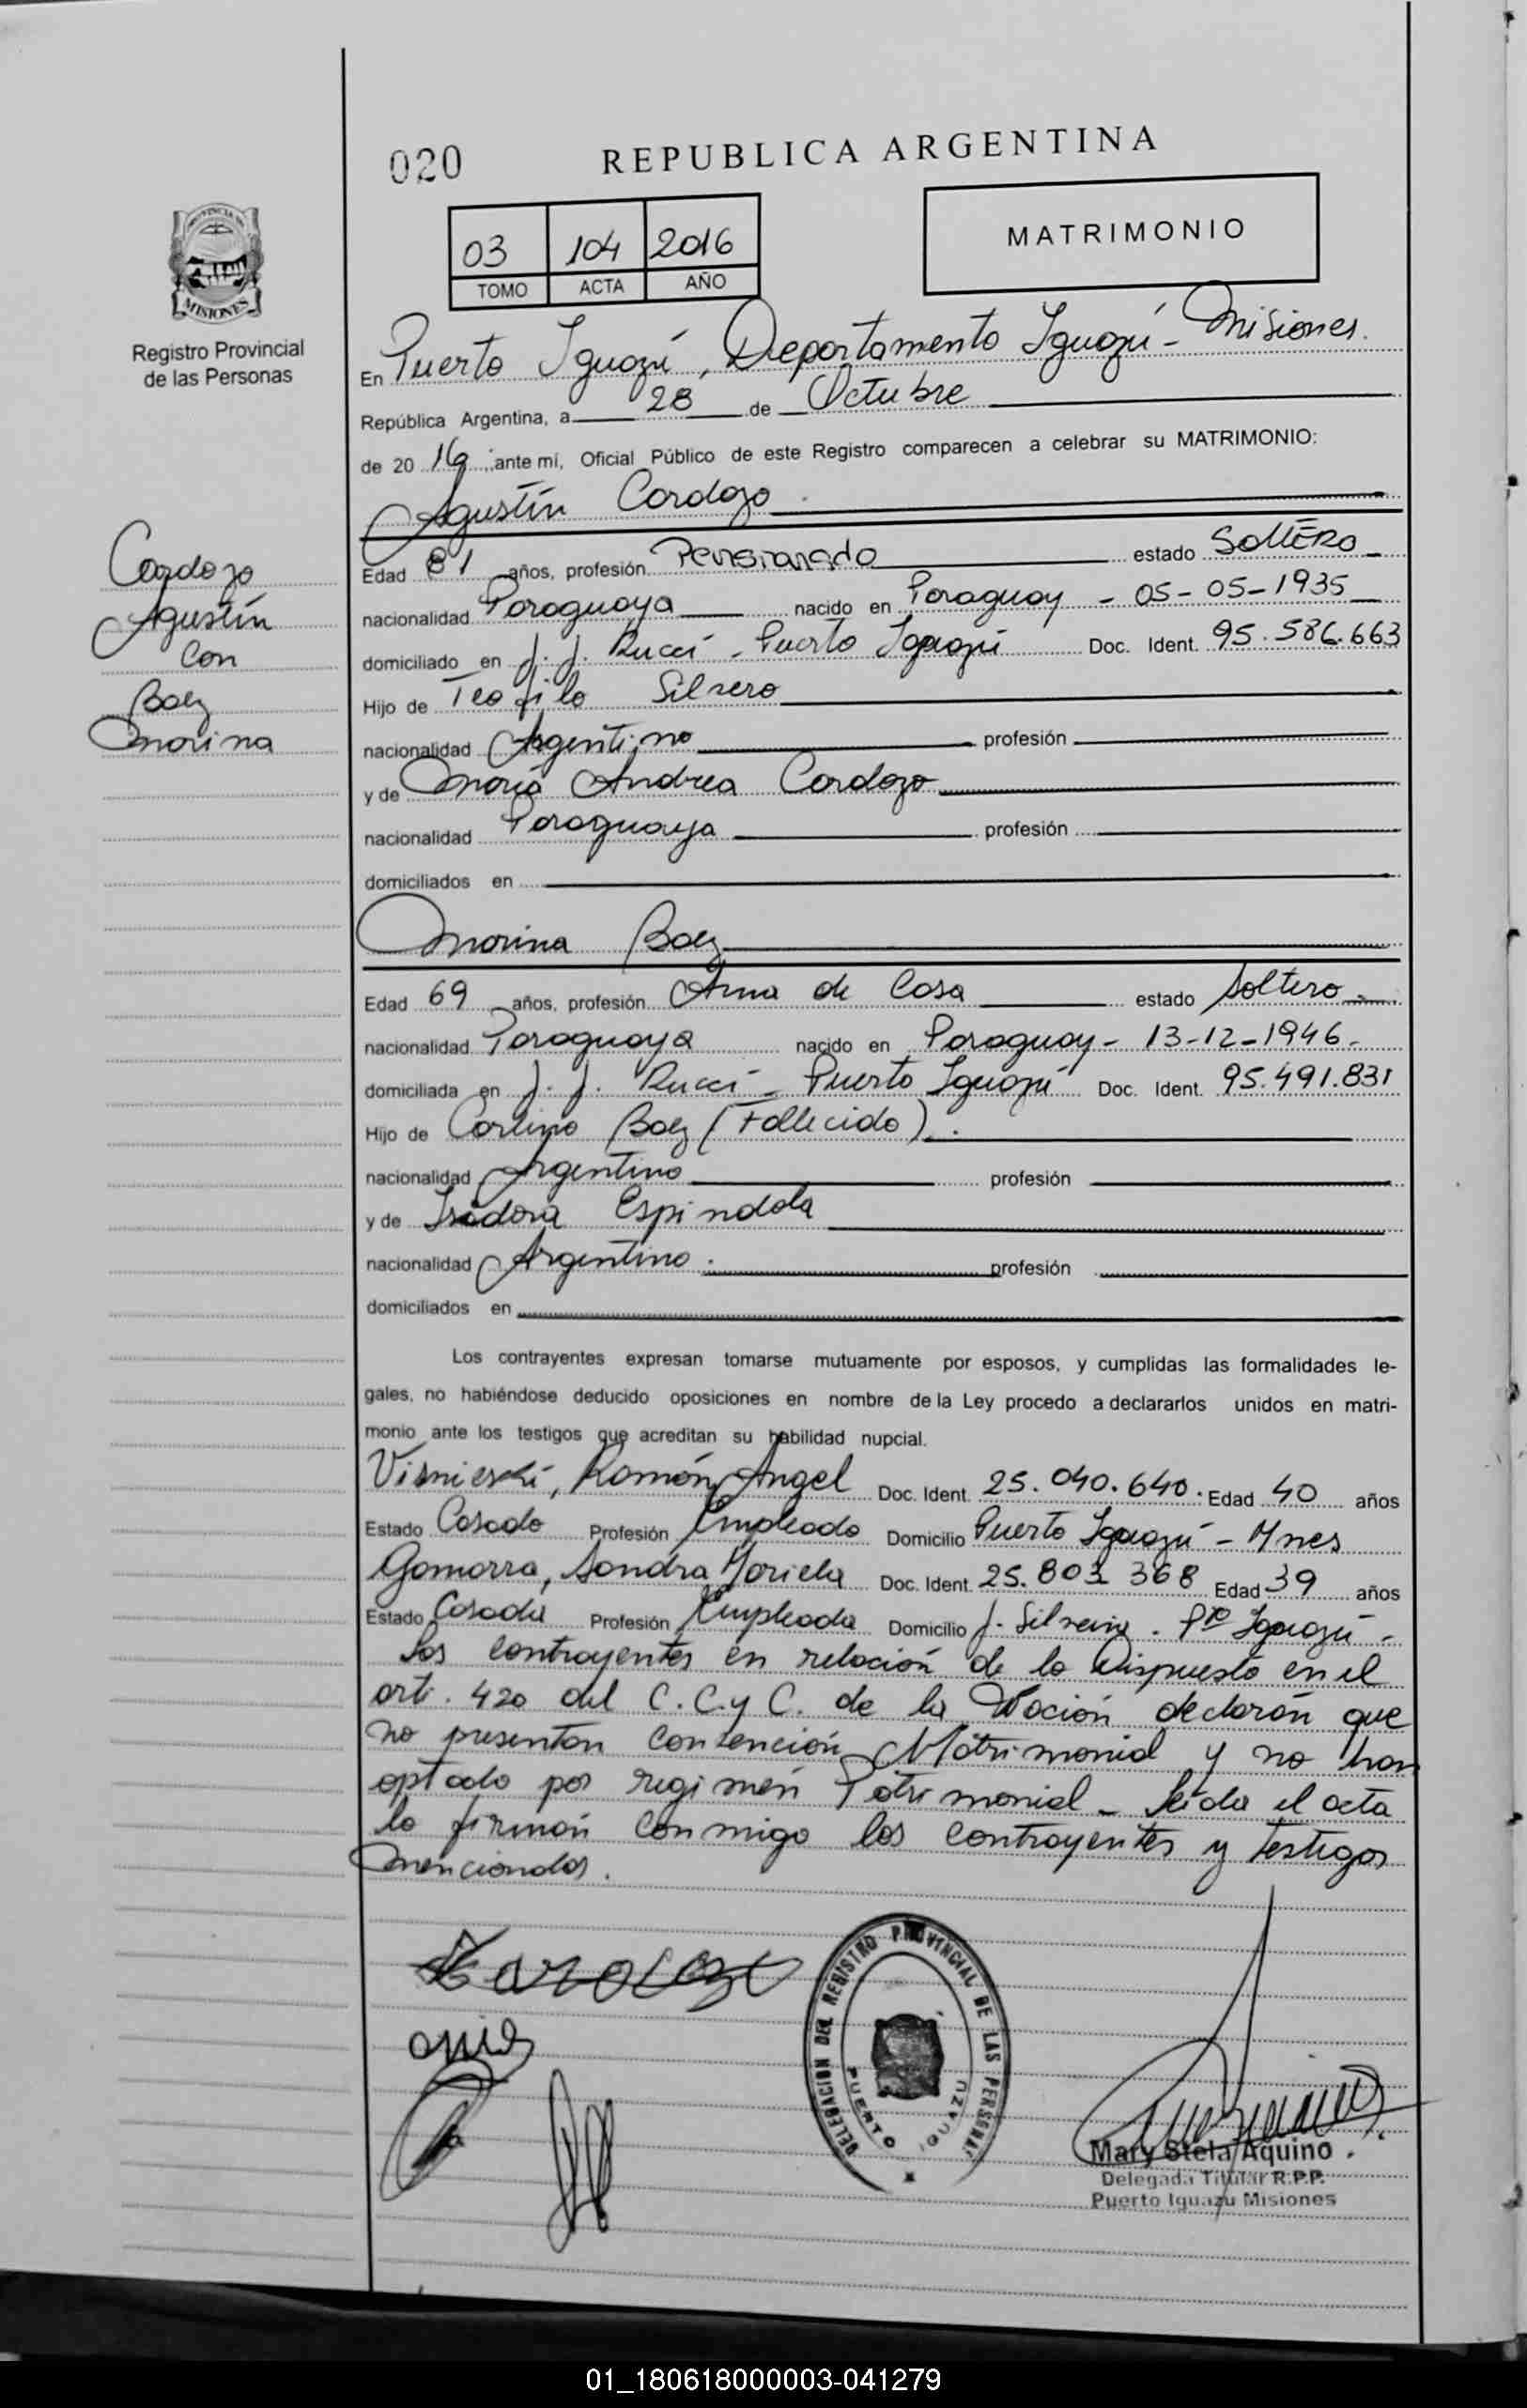 020
REPUBLICA ARGENTINA
03 104 2016
TOMO ACTA AÑO
MATRIMONIO
PROVINCIA DE
MISIONES
Registro Provincial
de las Personas
En Puerto Iguazú, Departamento Iguazú - Misiones.
República Argentina, a 28 de Octubre
de 20 16 ,ante mí, Oficial Público de este Registro comparecen a celebrar su MATRIMONIO:
Agustín Cardozo
Cardozo
Agustín
Con
Baez
Marina
Edad 81 años, profesión Pensionado estado Soltero
nacionalidad Paraguaya nacido en Paraguay - 05-05-1935
domiciliado en J. J. Rucci - Puerto Iguazú Doc. Ident. 95.586.663
Hijo de Teofilo Silvero
nacionalidad Argentino profesión
y de María Andrea Cardozo
nacionalidad Paraguaya profesión
domiciliados en
Marina Baez
Edad 69 años, profesión Ama de Casa estado Soltera
nacionalidad Paraguaya nacido en Paraguay - 13-12-1946.
domiciliada en J. J. Rucci - Puerto Iguazú Doc. Ident. 95.491.831
Hijo de Baez (Fallecido).
nacionalidad Argentino profesión
y de Isadora Espindola
nacionalidad Argentina. profesión
domiciliados en
Los contrayentes expresan tomarse mutuamente por esposos, y cumplidas las formalidades le-
gales, no habiéndose deducido oposiciones en nombre de la Ley procedo a declararlos unidos en matri-
monio ante los testigos que acreditan su habilidad nupcial.
Visnieski, Ramón Angel Doc. Ident. 25.040.640. Edad 40 años
Estado Casado Profesión Empleado Domicilio Puerto Iguazú - Mnes
Gamarra, Sandra Mariela Doc. Ident. 25.803 368 Edad 39 años
Estado Casada Profesión Empleada Domicilio J. Silveira. Pto Iguazú -
Los contrayentes en relación de lo dispuesto en el
art. 420 del C.C.y C. de la Nación declarán que
no presentan convención Matrimonial y no han
optado por regimén Patrimonial - Leída el acta
la firmán conmigo los contrayentes y testigos
mencionados.
DELEGACION DEL REGISTRO PROVINCIAL DE LAS PERSONAS
PUERTO IGUAZU
Mary Stela Aquino
Delegada Titular R.P.P.
Puerto Iguazu Misiones
01_180618000003-041279